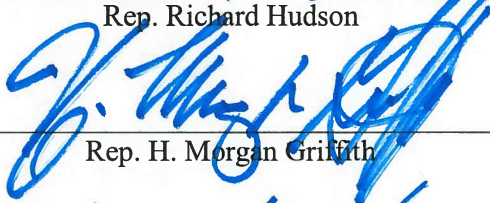 Rep. Richard Hudson
Rep. H. Morgan Griffith